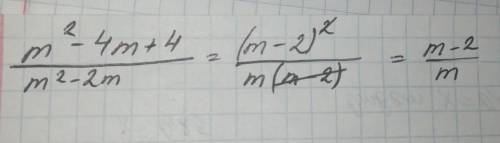 \frac{m^2 - 4m + 4}{m^2 - 2m} = \frac{(m-2)^2}{m(m-2)} = \frac{m-2}{m}